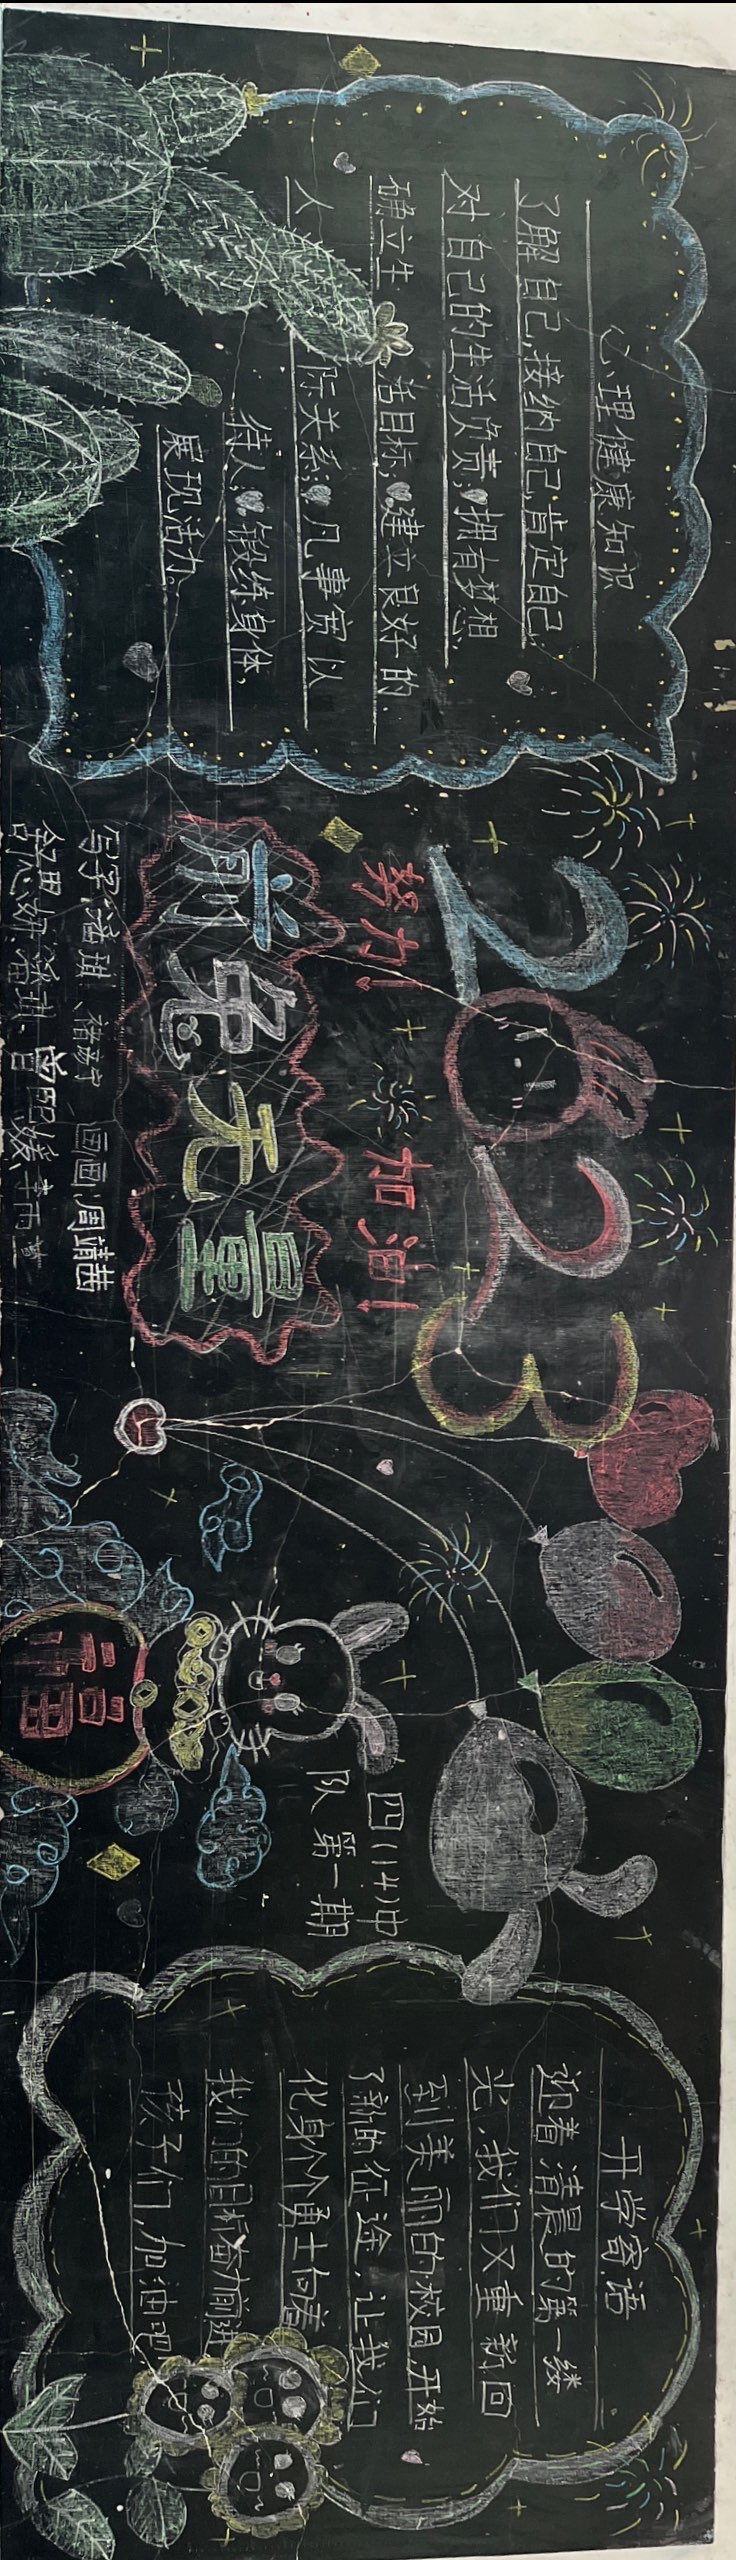 心理健康知识
了解自己,接纳自己,肯定自己,
对自己的生活负责;拥有梦想,
确立生活目标;建立良好的
人际关系;凡事宽以
待人;锻炼身体,
展现活力。
2023
努力! 加油!
前兔无量
写字:潘琪、褚 画画:周靖茜
四(14)中
队 第一期
福
开学寄语
迎着清晨的第一缕
光,我们又重新回
到美丽的校园,开始
了新的征途,让我们
化身个个勇士向着
我们的目标奋力前进
孩子们,加油吧!